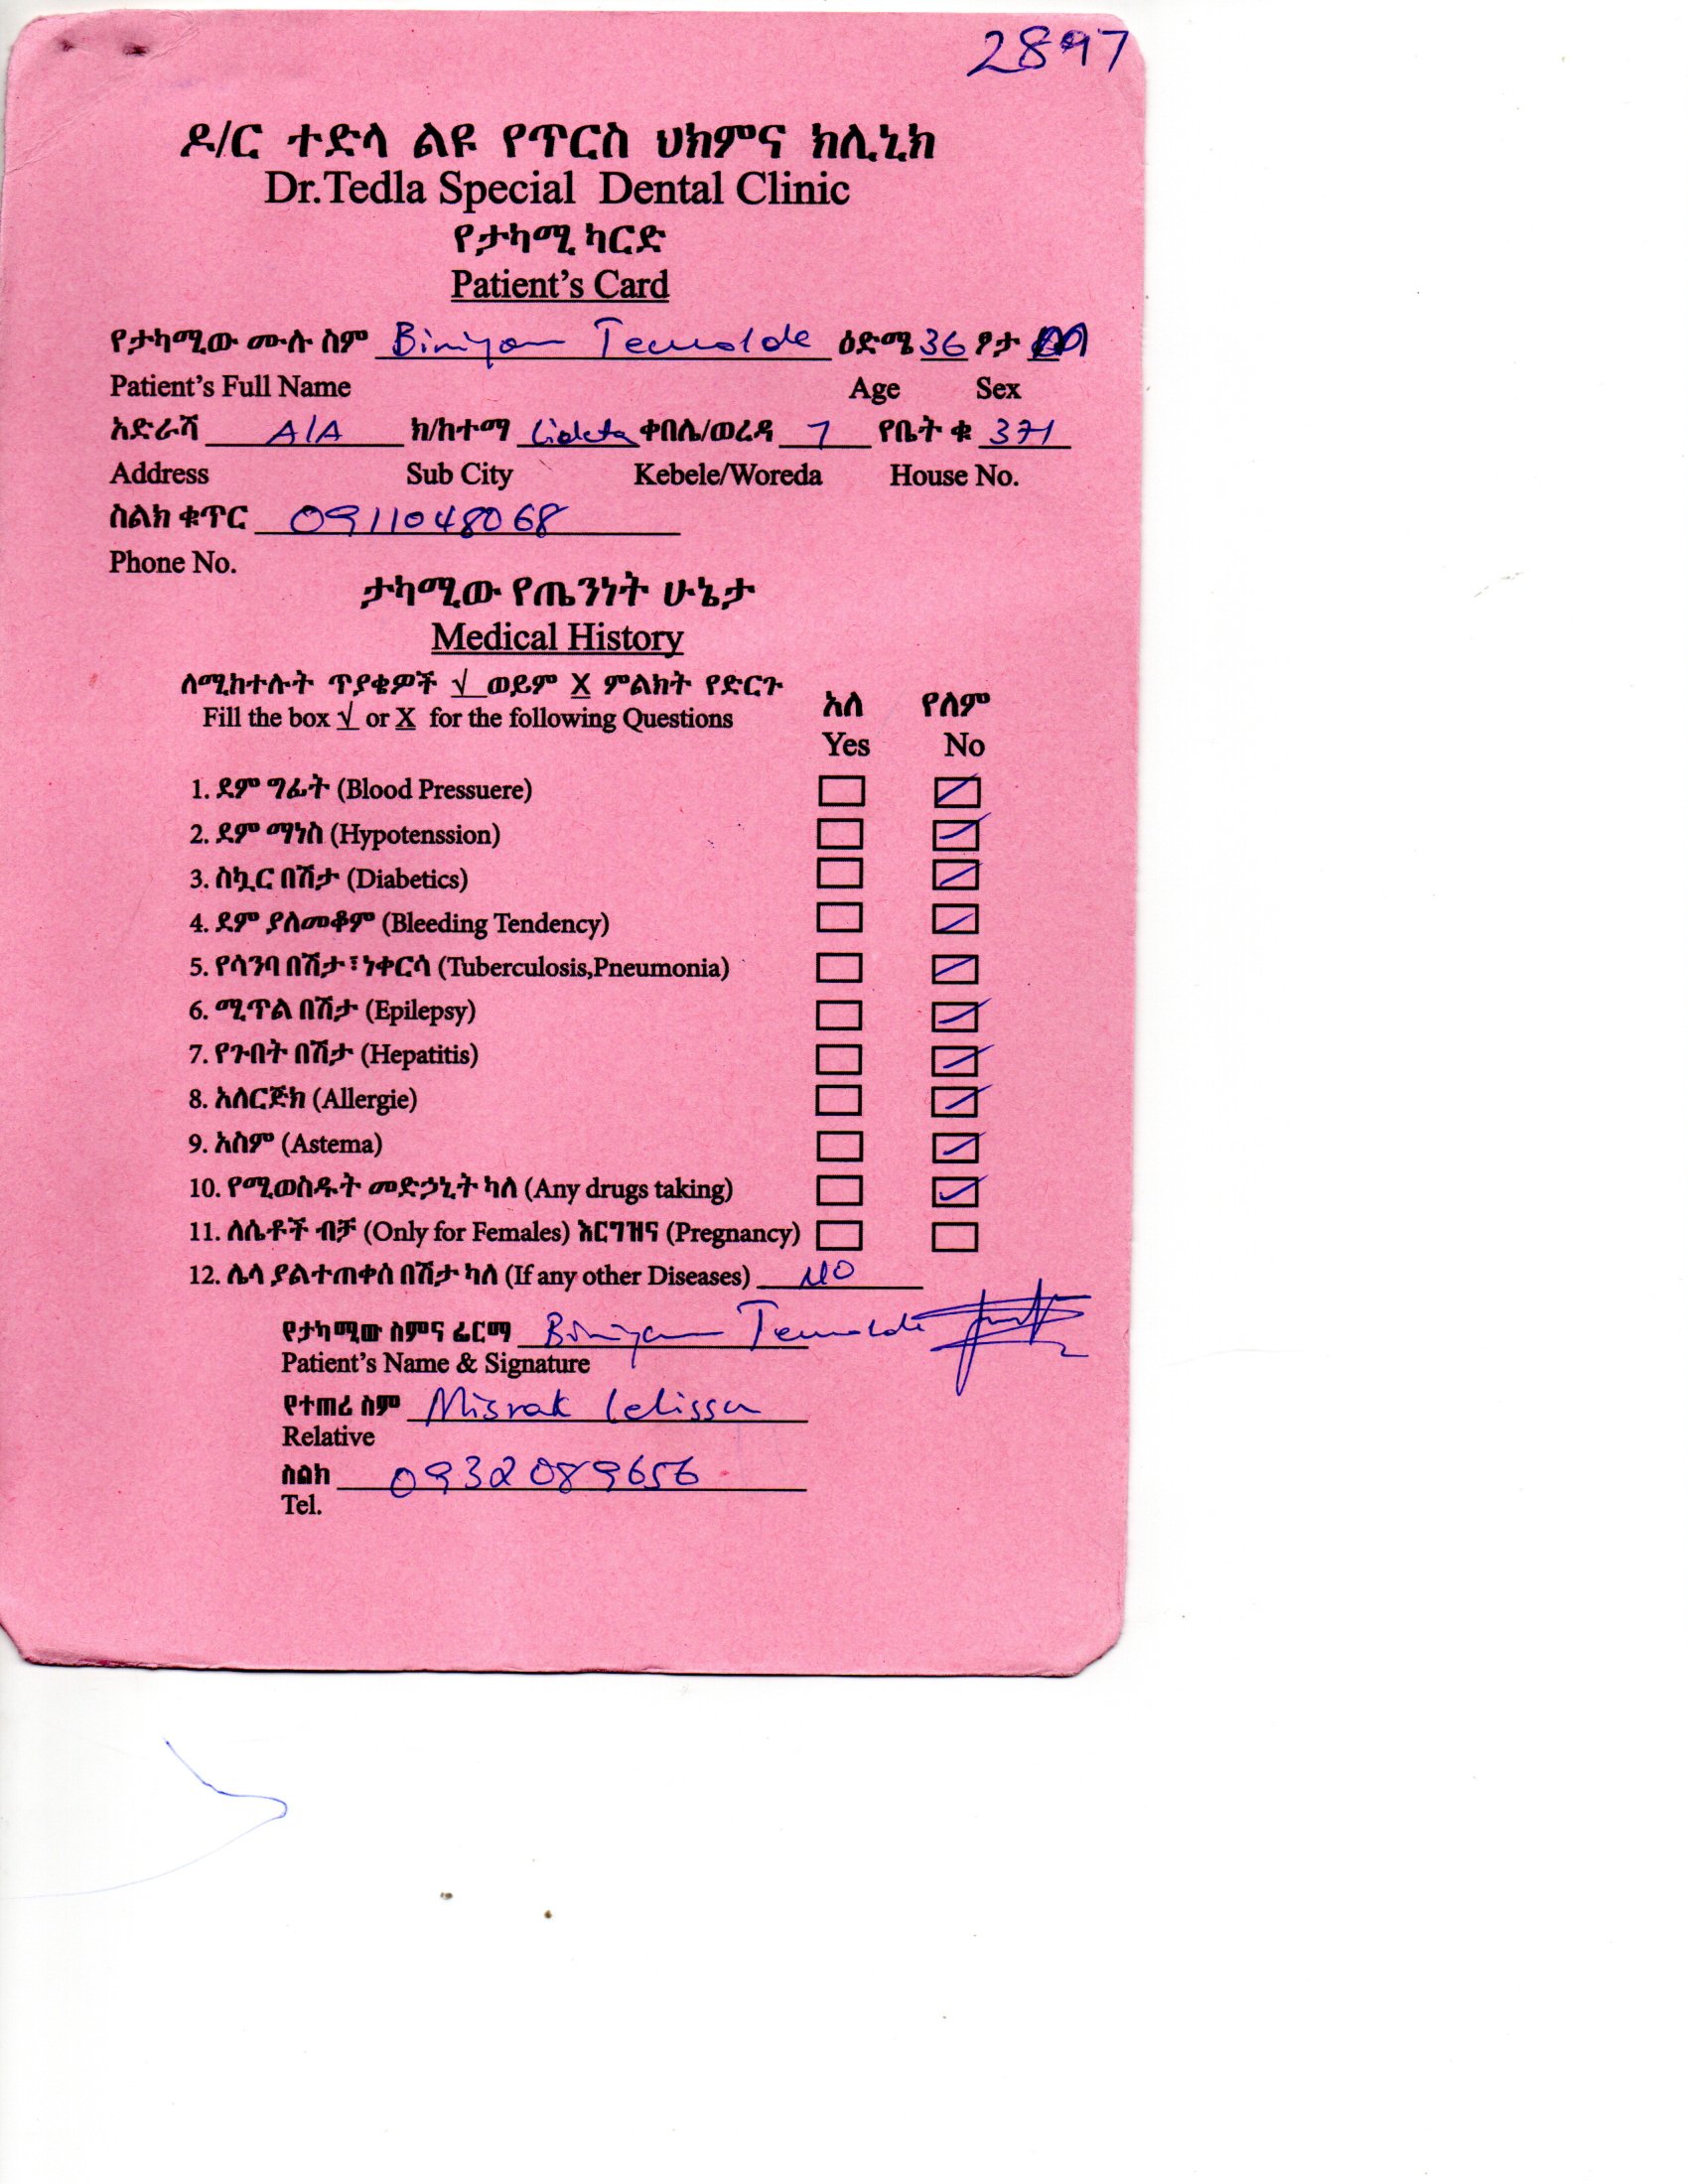 2897
ዶ/ር ተድላ ልዩ የጥርስ ህክምና ክሊኒክ
Dr.Tedla Special Dental Clinic
የታካሚ ካርድ
Patient's Card
የታካሚው ሙሉ ስም Biniyam ዕድሜ 36 ፆታ M
Patient's Full Name Age Sex
አድራሻ A/A ክ/ከተማ Lideta ቀበሌ/ወረዳ 7 የቤት ቁ 371
Address Sub City Kebele/Woreda House No.
ስልክ ቁጥር 0911048068
Phone No.
ታካሚው የጤንነት ሁኔታ
Medical History
ለሚከተሉት ጥያቄዎች √ ወይም X ምልክት የድርጉ
Fill the box √ or X for the following Questions
አለ የለም
Yes No
1. ደም ግፊት (Blood Pressuere)
2. ደም ማነስ (Hypotenssion)
3. ስኳር በሽታ (Diabetics)
4. ደም ያለመቆም (Bleeding Tendency)
5. የሳንባ በሽታ፣ነቀርሳ (Tuberculosis,Pneumonia)
6. ሚጥል በሽታ (Epilepsy)
7. የጉበት በሽታ (Hepatitis)
8. አለርጅክ (Allergie)
9. አስም (Astema)
10. የሚወስዱት መድኃኒት ካለ (Any drugs taking)
11. ለሴቶች ብቻ (Only for Females) እርግዝና (Pregnancy)
12. ሌላ ያልተጠቀሰ በሽታ ካለ (If any other Diseases) NO
የታካሚው ስምና ፊርማ Biniyam
Patient's Name & Signature
የተጠሪ ስም Misrak Lelissa
Relative
ስልክ 0932089656
Tel.